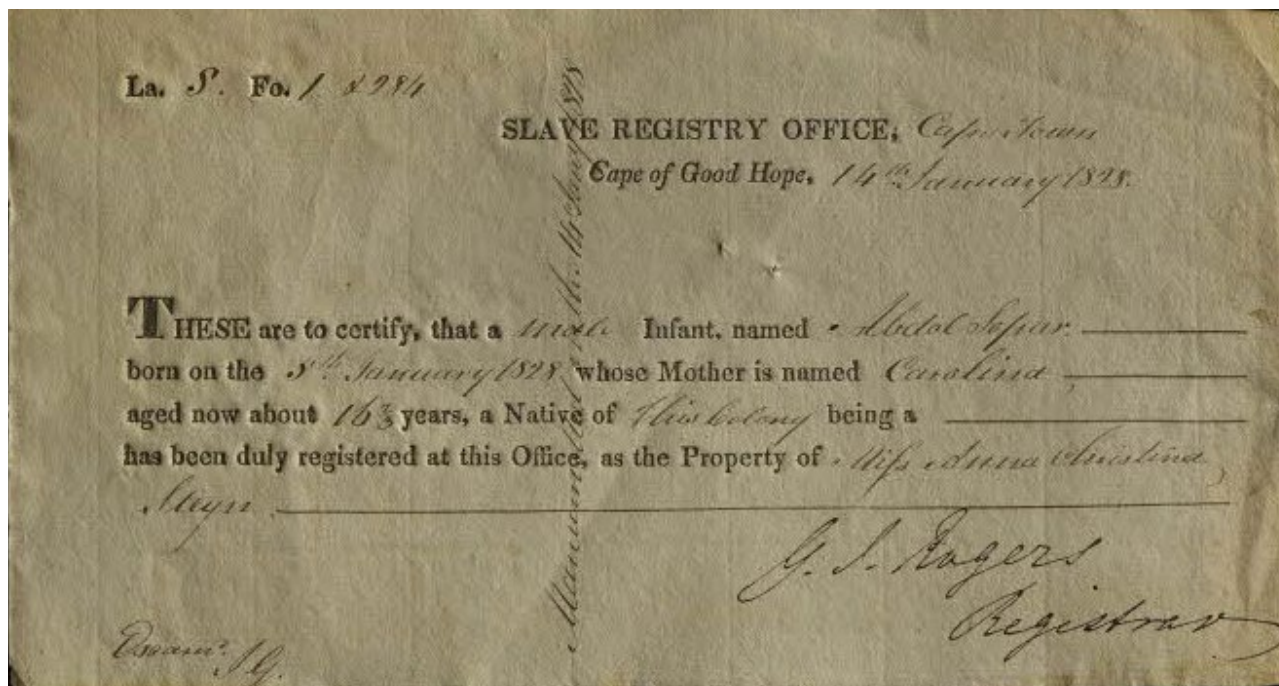 La. S. Fo. 1 & 284
SLAVE REGISTRY OFFICE, Cape Town
Cape of Good Hope, 14th January 1828.
THESE are to certify, that a male Infant, named Abdol Sopar.
born on the 5th January 1828 whose Mother is named Carolina
aged now about 16 years, a Native of this Colony being a
has been duly registered at this Office, as the Property of Miss Anna Christina
Steyn
G. J. Rogers
Registrar
Examd. J G.
Manumitted 14 Jany 1828